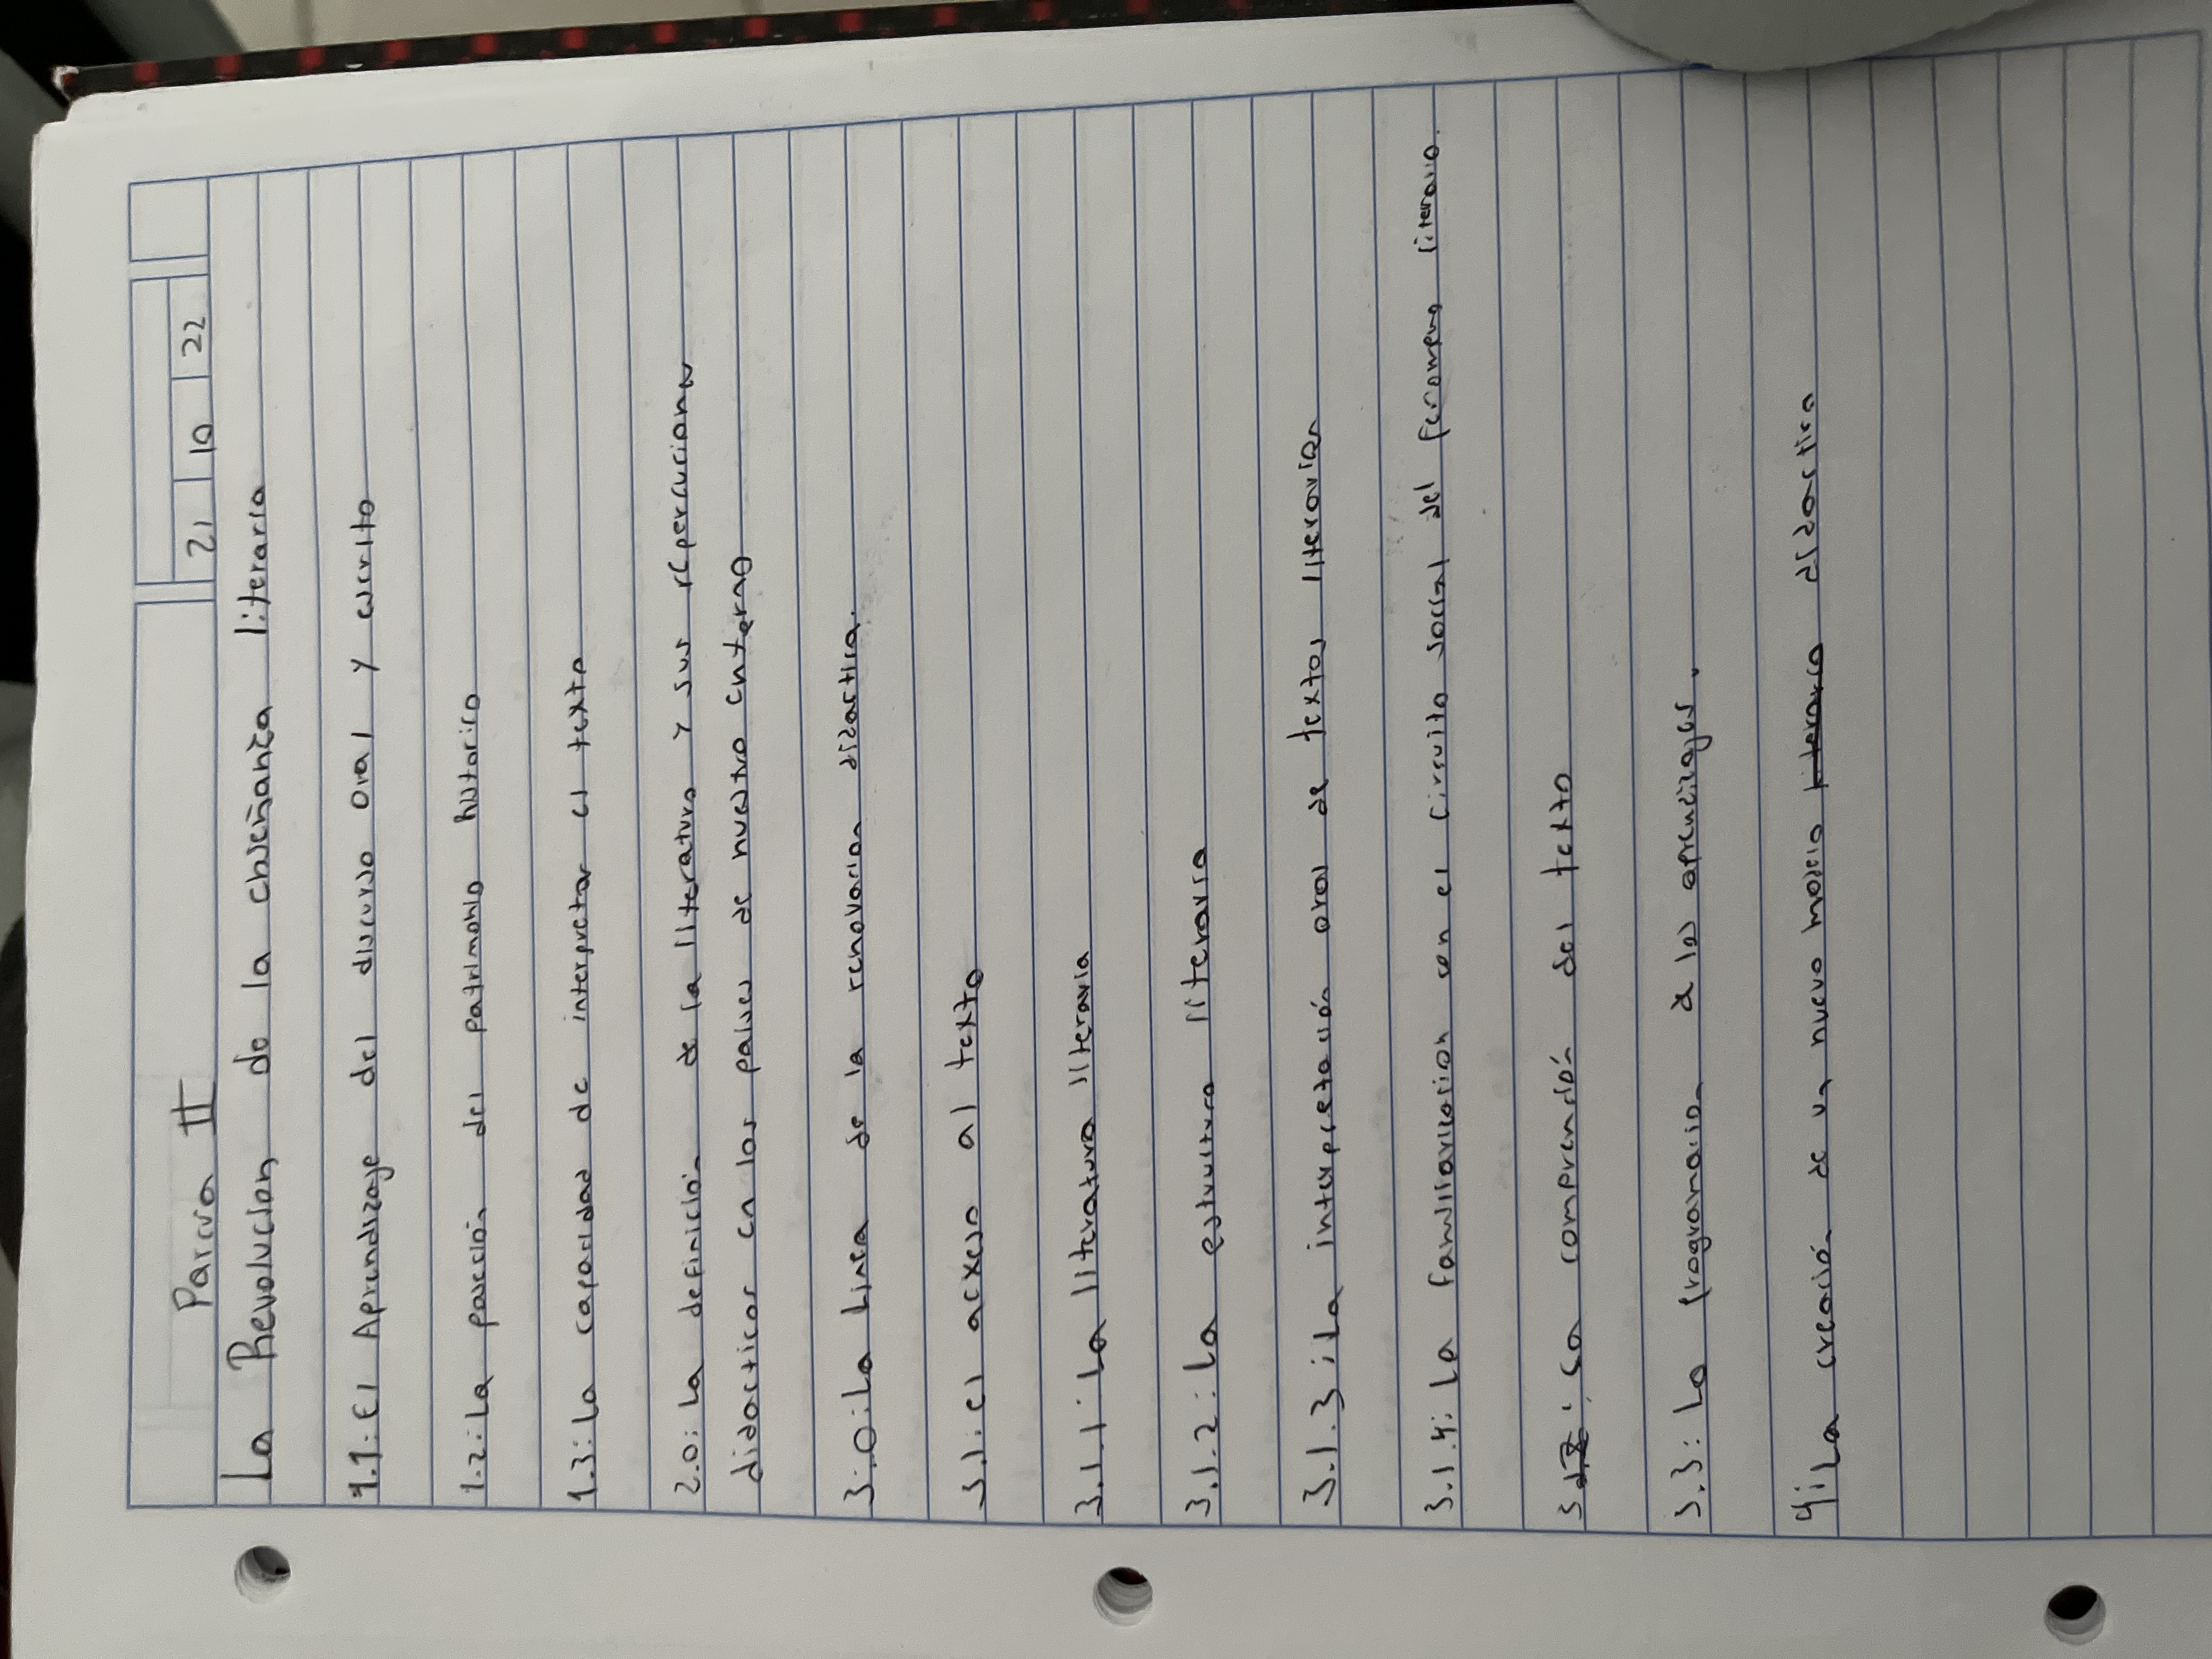 Parcia II
21 10 22
La Revolucion de la enseñanza literaria
1.1: El Aprendizaje del discurso oral y escrito
1.2: La poseción del patrimonio historico
1.3: La capacidad de interpretar el texto
2.0: La definición de la literatura y sus repercuciones
didacticas en los paises de nuestro entorno
3.0: La Linea de la renovacion didactica.
3.1: el acxeso al texto
3.1.1: La literatura literaria
3.1.2: La estructura literaria
3.1.3: La interpretación oral de textos literarios
3.1.4: La familiarizacion con el circuito social del fenomeno literario.
3.2: La comprención del texto
3.3: La programacion de los aprendizajes.
4: La creación de un nuevo modelo literario didactico